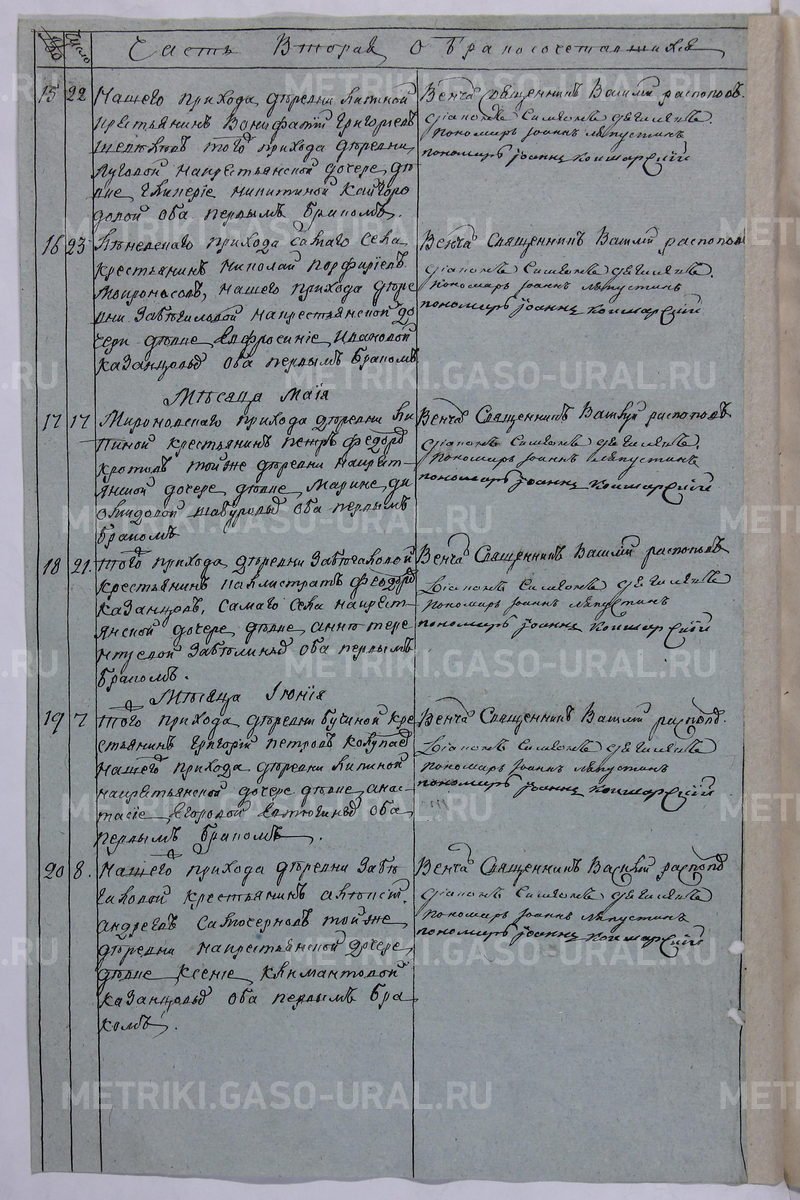 число
Часть Вторая О бракосочетавшихся
15 22 Нашего прихода деревни Липиной
крестьянинъ Вонифатiй Григорьевъ
того прихода деревни
Луговой на крестьянской дочере де
вке Гликерiе Никитиной Кайгоро
довой оба первымъ бракомъ.
Венча Священникъ Василий распоповъ.
дiаконъ Симеонъ дягилевъ.
пономарь Iоаннъ ляпустинъ
пономарь Iоаннъ Комарскiй
16 23 прихода самаго села
крестьянинъ Николай Порфирiевъ
Мироносовъ, нашего прихода дере
вни Забегаловой на крестьянской до
чери девке Евфросинiе Ивановой
казанцовыхъ оба первымъ бракомъ
Венча Священникъ Василий распопов
дiаконъ Симеонъ дягилевъ.
пономарь Iоаннъ ляпустинъ
пономарь Iоаннъ Комарскiй
Месяца Маiя
17 17 Мироновскаго прихода деревни Ли
пиной крестьянинъ петръ федоровъ
кротовъ той же деревни на крест
янской дочере девке Марине ди
овидовой оба первымъ
бракомъ
Венча Священникъ Василий распоповъ
дiаконъ Симеонъ дягилевъ.
пономарь Iоаннъ ляпустинъ
пономарь Iоаннъ Комарскiй
18 21. Того прихода деревни Забегаловой
крестьянинъ Каллистратъ Феодоровъ
казанцовъ, самаго села на крест
янской дочере девке анне тере
нтуевой оба первымъ
бракомъ.
Венча Священникъ Василий распоповъ
дiаконъ Симеонъ дягилевъ
пономарь Iоаннъ ляпустинъ
пономарь Iоаннъ Комарскiй
Месяца Iюнiя
19 7 Того прихода деревни бучиной кре
стьянинъ Григорiй петровъ
нашего прихода деревни Липиной
на крестьянской дочере девке анас
тасiе Егоровой Евтюгиныхъ оба
первымъ бракомъ.
Венча Священникъ Василий распоповъ.
дiаконъ Симеонъ дягилевъ
пономарь Iоаннъ ляпустинъ
пономарь Iоаннъ Комарскiй
20 8. Нашего прихода деревни Забе
галовой крестьянинъ
андреевъ Савточерновъ той же
деревни на крестьянской дочере
девке Ксенiе Климантовой
казанцовыхъ оба первымъ бра
комъ.
Венча Священникъ Василий распоповъ
дiаконъ Симеонъ дягилевъ
пономарь Iоаннъ ляпустинъ
пономарь Iоаннъ Комарскiй
METRIKI.GASO-URAL.RU